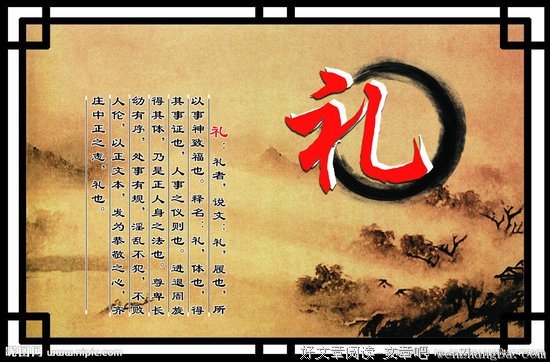 礼
礼：礼者，说文：礼，履也，所
以事神致福也。释名：礼，体也，得
其事证也，人事之仪则也。进退周旋
得其体，乃是正人身之法也。尊卑长
幼有序，处事有规，淫乱不犯，不败
人伦，以正文本，发为恭敬之心，齐
庄中正之志，礼也。
昵图网 www.nipic.com
好文章阅读 文章吧 wenzhangba.com